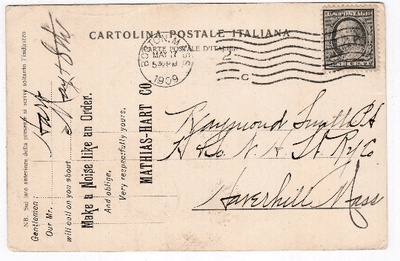 CARTOLINA POSTALE ITALIANA
(CARTE POSTALE D'ITALIE)
BOSTON, M
MAY 17
5 30 PM
1909
2
C
NB. Sul lato anteriore della presente si scrive soltanto l'indirizzo
Gentlemen:
Our Mr. Hart
will call on you about May 18th
Make a Noise like an Order.
And oblige,
Very respectfully yours,
MATHIAS-HART CO
Raymond Smith
N. H. St Ry Co
Haverhill
Mass